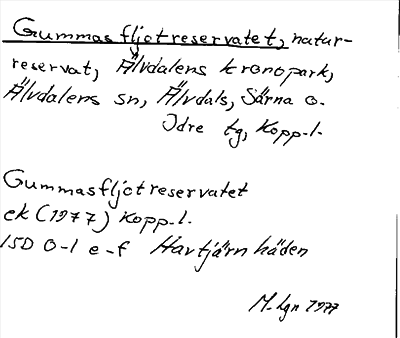 Gummasfljotreservatet, natur-
reservat, Älvdalens kronopark,
Älvdalens sn, Älvdals, Särna o.
Idre tg, Kopp.l.
Gummasfljotreservatet
ek (1977) Kopp.l.
15D 0-1 e-f Havtjärnhåden
M.hgn 1977